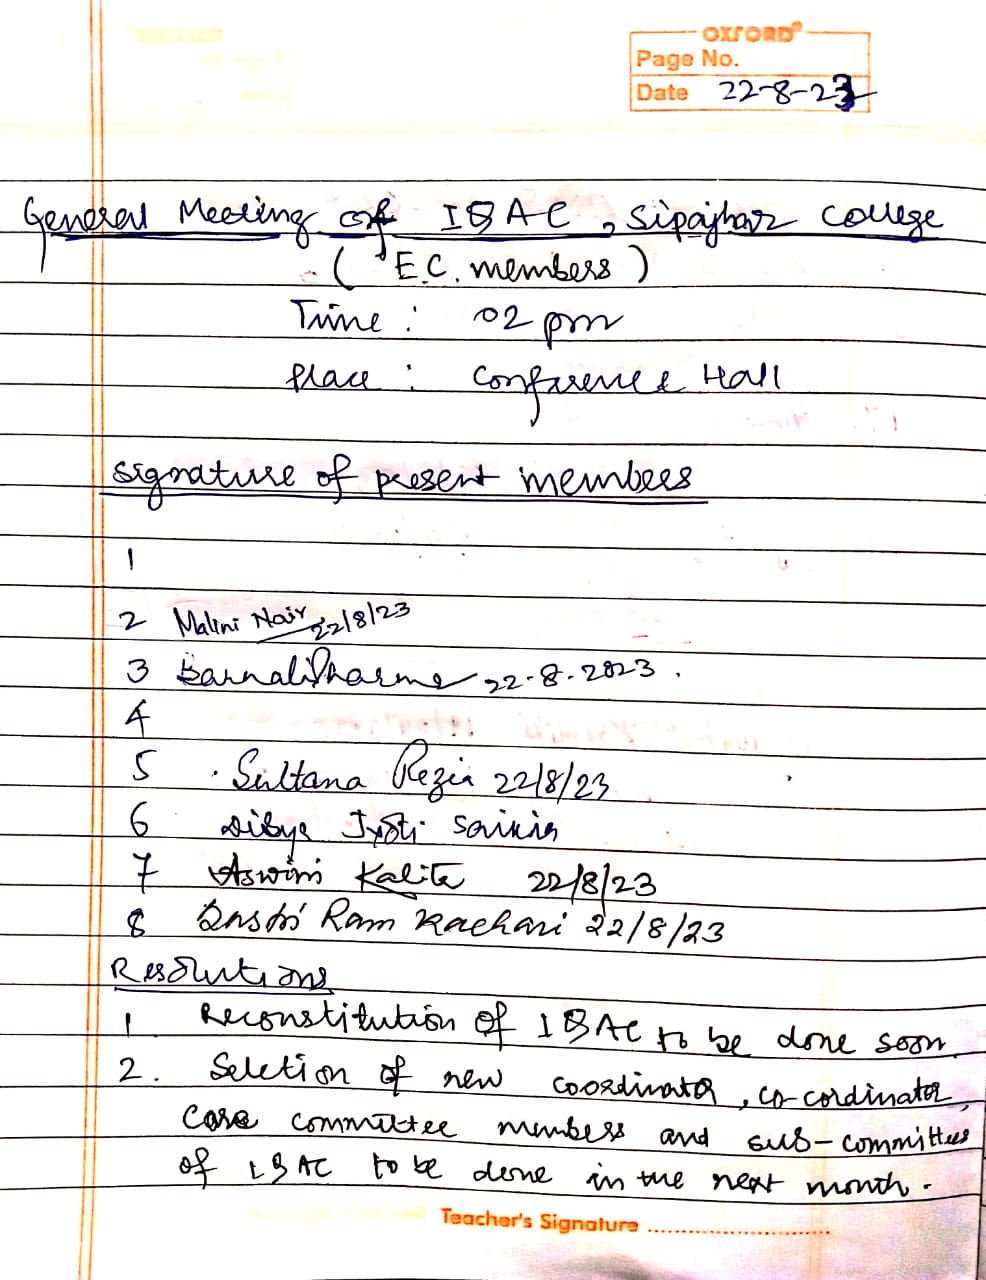 OXFORD®
Page No.
Date 22-8-23
General Meeting of IQAC, Sipajhar College
( E.C. members )
Time : 02 pm
Place : Conference Hall
Signature of present members
1
2 Malini Nair 22/8/23
3 Barnali Sharma 22-8-2023.
4
5 Sultana Rezia 22/8/23
6 Dibya Jyoti Saikia
7 Aswini Kalita 22/8/23
8 Ram Kachari 22/8/23
Resolutions
1 Reconstitution of IQAC to be done soon.
2. Seletion of new coordinator, co-cordinator,
Core committee members and sub-committees
of IQAC to be done in the next month.
Teacher's Signature ..............................